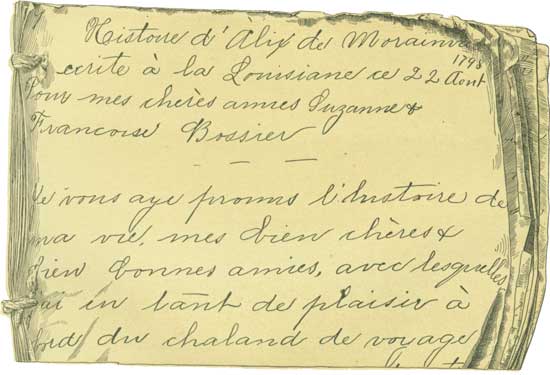 Histoire d'Alix de Morainvi
écrite à la Louisiane ce 22 Aout 1795
Pour mes chères amies Suzanne &
Francoise Bossier
Je vous aye promis l'histoire de
ma vie, mes bien chères &
bien bonnes amies, avec lesquelles
j'ai eu tant de plaisir à
bord du chaland de voyage